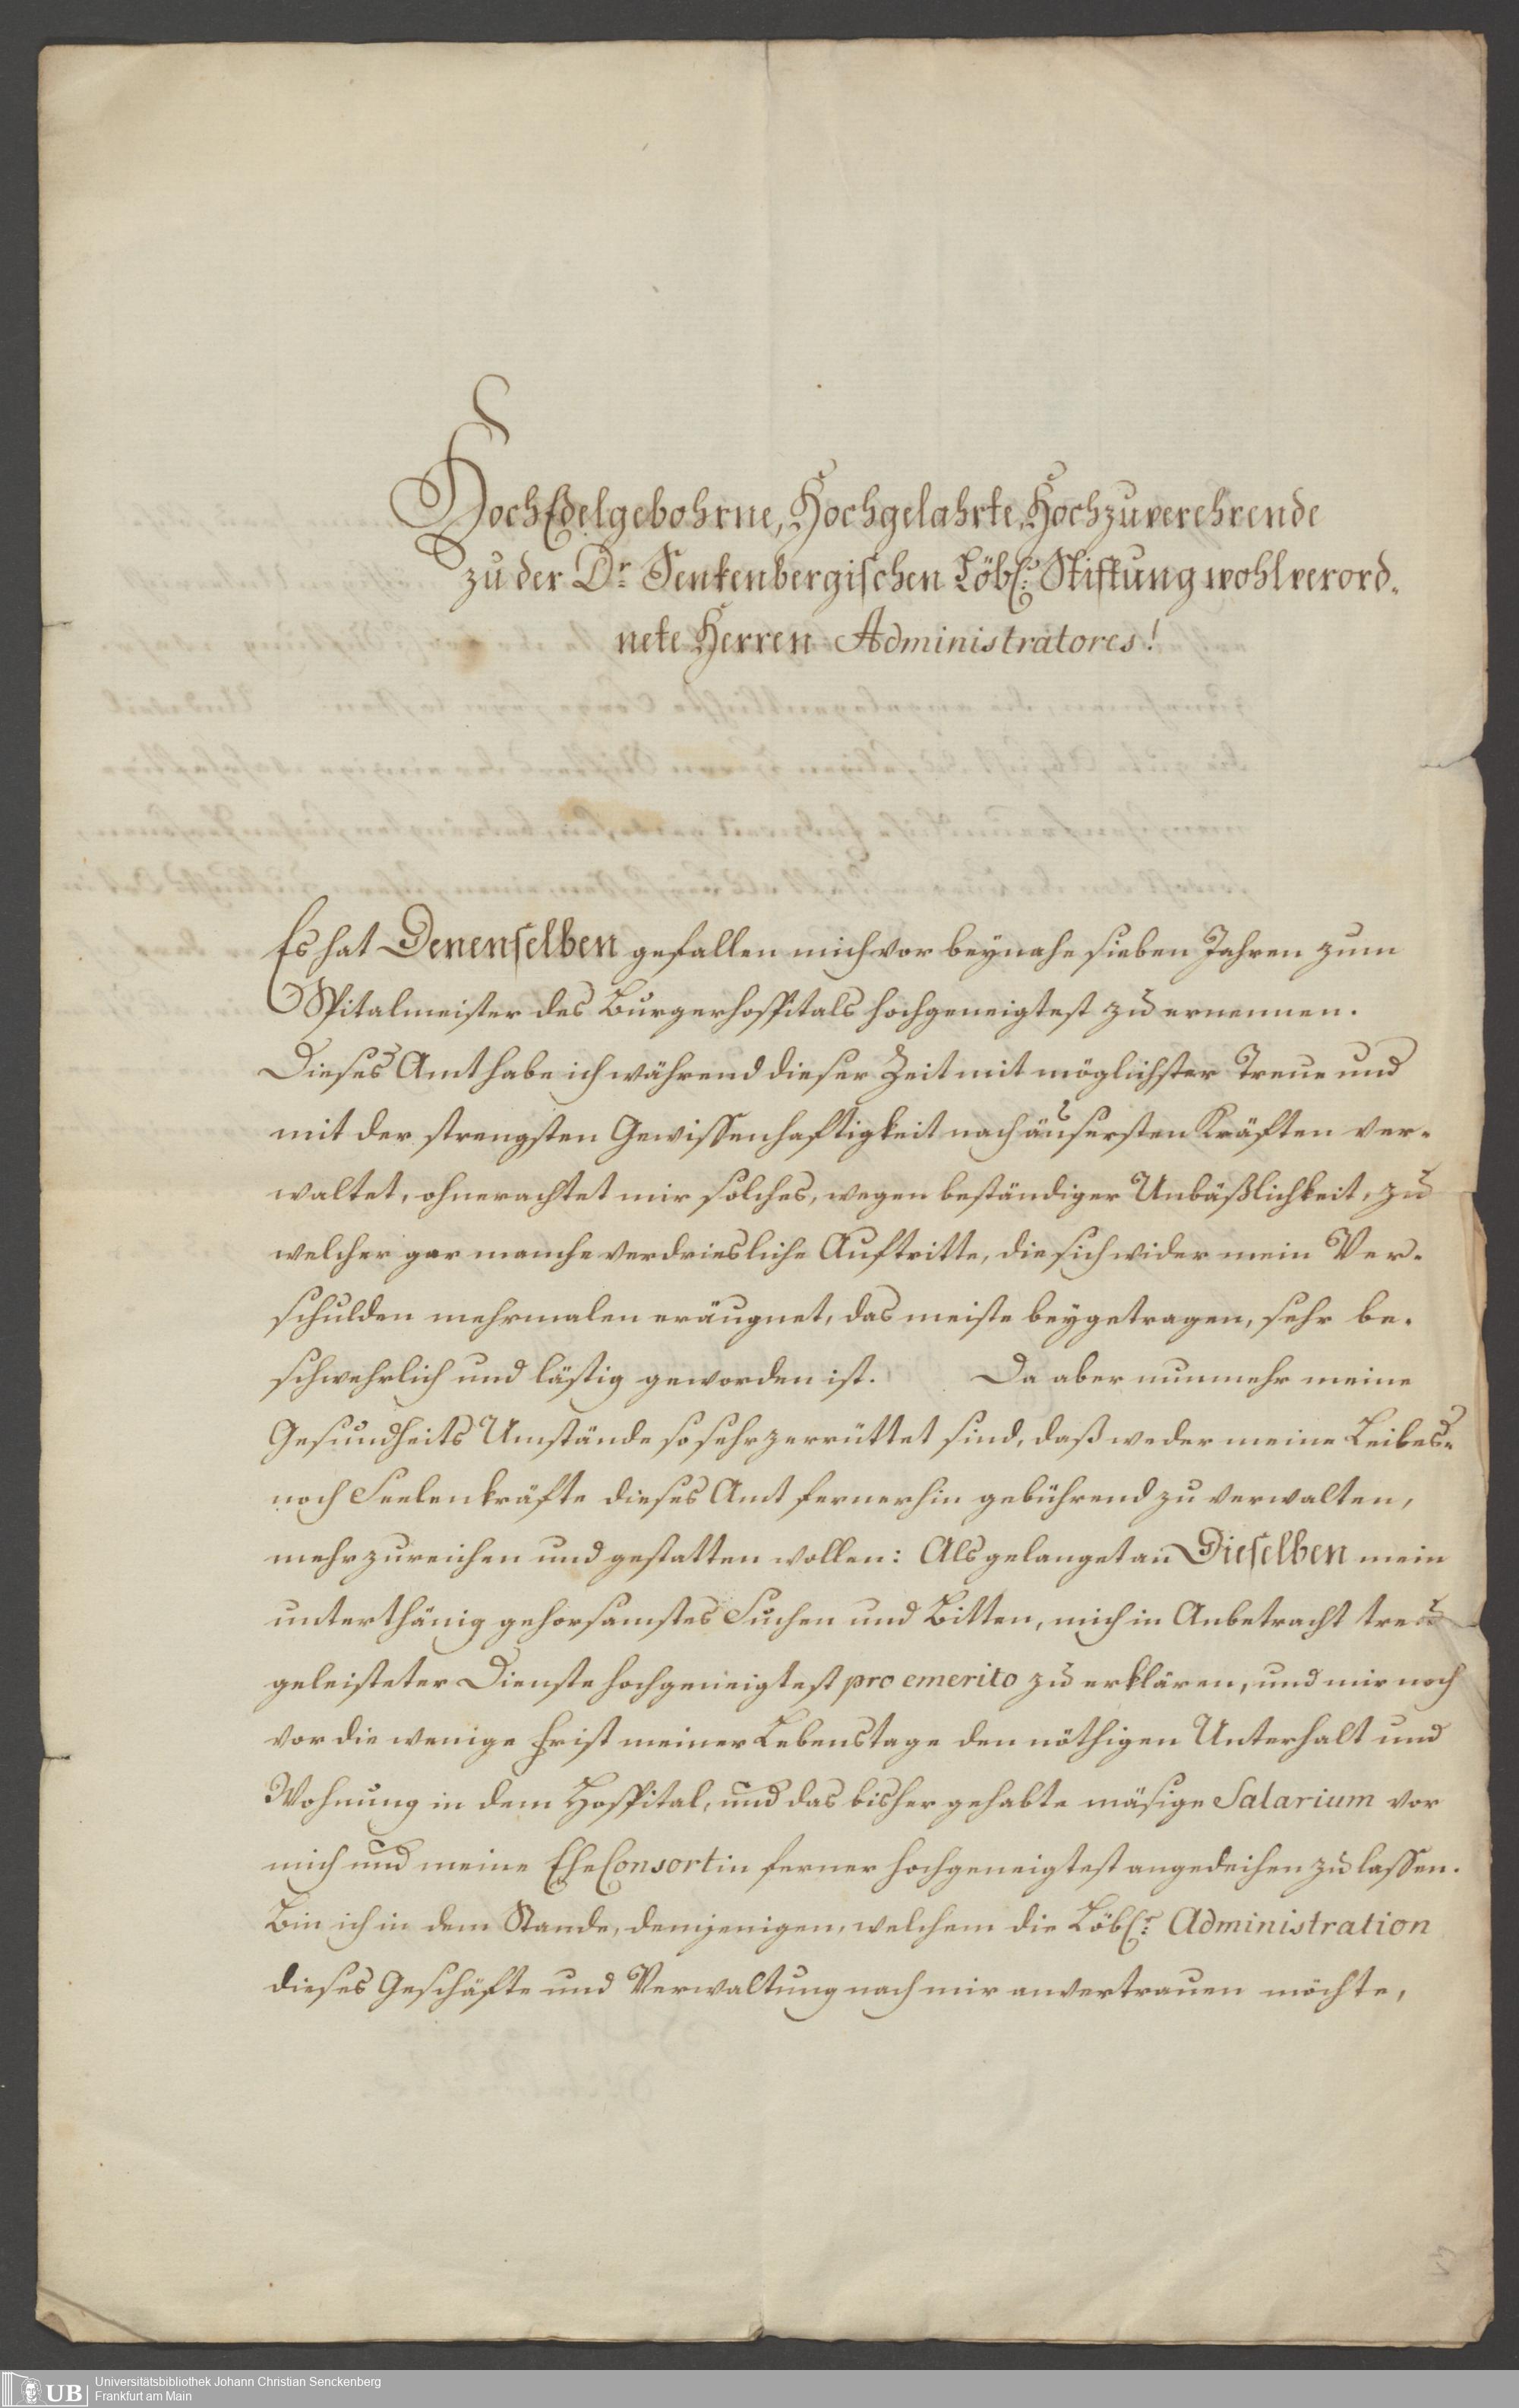 HochEdelgebohrne, Hochgelahrte, Hochzuverehrende
zu der Dr Senkenbergischen Löbl: Stiftung wohlverord-
nete Herren Administratores!
Es hat Denenselben gefallen mich vor beynahe sieben Jahren zum
Spitalmeister des Burgerhospitals hochgeneigtest zu ernennen.
Dieses Amt habe ich während dieser Zeit mit möglichster Treue und
mit der strengsten Gewissenhaftigkeit nach äusersten Kräften ver-
waltet, ohnerachtet mir solches, wegen beständiger Unbäßlichkeit, zu
welcher gar manche verdriesliche Auftritte, die sich wider mein Ver-
schulden mehrmalen eräugnet, das meiste beygetragen, sehr be-
schwehrlich und lästig geworden ist. Da aber nunmehr meine
Gesundheits Umstände so sehr zerrüttet sind, daß weder meine Leibes-
noch Seelenkräfte dieses Amt fernerhin gebührend zu verwalten,
mehr zureichen und gestatten wollen: Als gelanget an Dieselben mein
unterthänig gehorsamstes Suchen und Bitten, mich in Anbetracht treu
geleisteter Dienste hochgeneigtest pro emerito zu erklären, und mir noch
vor die wenige Frist meiner Lebenstage den nöthigen Unterhalt und
Wohnung in dem Hospital, und das bisher gehabte mäsige Salarium vor
mich und meine EheConsortin ferner hochgeneigtest angedeihen zu lassen.
Bin ich in dem Stande, demjenigen, welchem die Löbl: Administration
dieses Geschäfte und Verwaltung nach mir anvertrauen möchte,
UB
Universitätsbibliothek Johann Christian Senckenberg
Frankfurt am Main